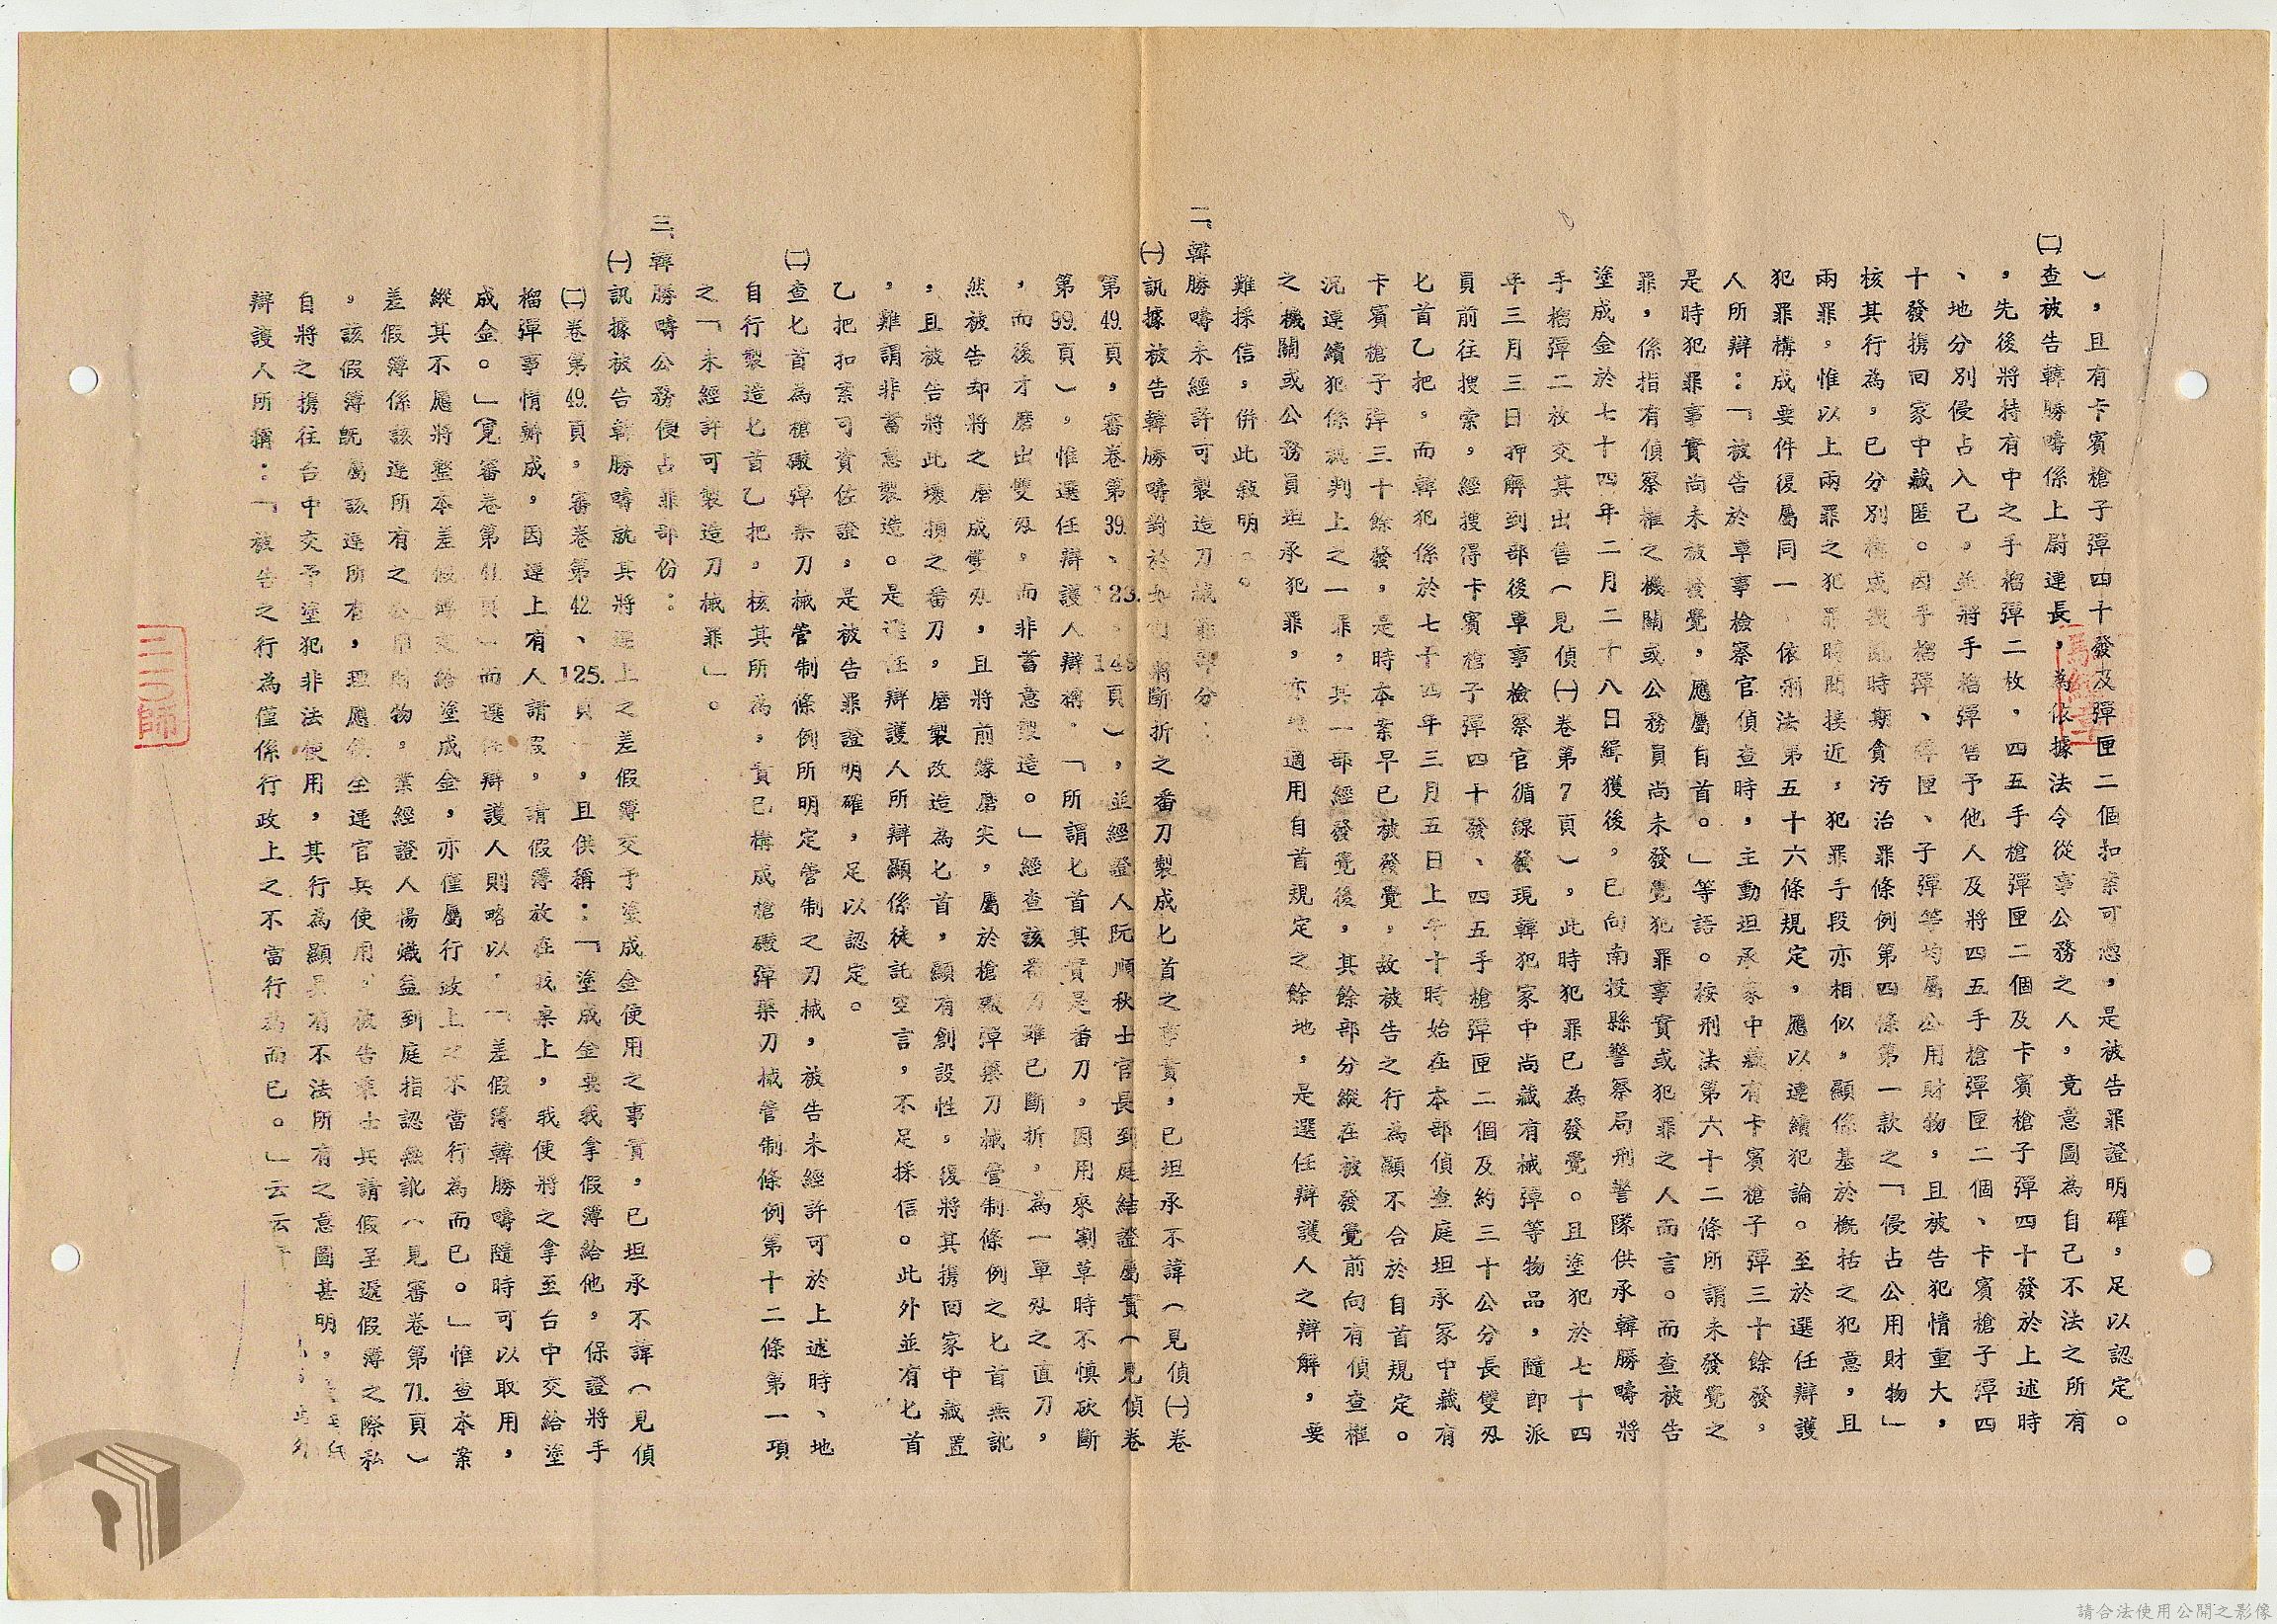 ），且有卡賓槍子彈四十發及彈匣二個扣案可憑，是被告罪證明確，足以認定。
㈡查被告韓勝疇係上尉連長，為依據法令從事公務之人，竟意圖為自己不法之所有
，先後將持有中之手榴彈二枚，四五手槍彈匣二個及卡賓槍子彈四十發於上述時
、地分別侵占入己，並將手榴彈售予他人及將四五手槍彈匣二個、卡賓槍子彈四
十發携回家中藏匿。因手榴彈、彈匣、子彈等均屬公用財物，且被告犯情重大，
核其行為，已分別構成戡亂時期貪污治罪條例第四條第一款之「侵占公用財物」
兩罪，惟以上兩罪之犯罪時間接近，犯罪手段亦相似，顯係基於概括之犯意，且
犯罪構成要件復屬同一，依刑法第五十六條規定，應以連續犯論。至於選任辯護
人所辯：「被告於軍事檢察官偵查時，主動坦承家中藏有卡賓槍子彈三十餘發，
是時犯罪事實尚未被發覺，應屬自首。」等語。按刑法第六十二條所謂未發覺之
罪，係指有偵察權之機關或公務員尚未發覺犯罪事實或犯罪之人而言。而查被告
塗成金於七十四年二月二十八日緝獲後，已向南投縣警察局刑警隊供承韓勝疇將
手榴彈二枚交其出售（見偵㈠卷第7頁），此時犯罪已為發覺。且塗犯於七十四
年三月三日押解到部後軍事檢察官循線發現韓犯家中尚藏有械彈等物品，隨即派
員前往搜索，經搜得卡賓槍子彈四十發、四五手槍彈匣二個及約三十公分長雙刄
匕首乙把。而韓犯係於七十四年三月五日上午十時始在本部偵查庭坦承家中藏有
卡賓槍子彈三十餘發，是時本案早已被發覺，故被告之行為顯不合於自首規定。
況連續犯係裁判上之一罪，其一部經發覺後，其餘部分縱在被發覺前向有偵查權
之機關或公務員坦承犯罪，亦無適用自首規定之餘地，是選任辯護人之辯解，要
難採信，併此敍明。
二、韓勝疇未經許可製造刀械罪部分：
㈠訊據被告韓勝疇對於如何將斷折之番刀製成匕首之事實，已坦承不諱（見偵㈠卷
第49.頁，審卷第39.、123.、148頁），並經證人阮順秋士官長到庭結證屬實（見偵卷
第99.頁）。惟選任辯護人辯稱：「所謂匕首其實是番刀，因用來割草時不慎砍斷
，而後才磨出雙刄，而非蓄意製造。」經查該番刀雖已斷折，為一單刄之直刀，
然被告却將之磨成雙刄，且將前緣磨尖，屬於槍礮彈藥刀械管制條例之匕首無訛
，且被告將此壞損之番刀，磨製改造為匕首，顯有創設性，復將其携回家中藏置
，難謂非蓄意製造。是選任辯護人所辯顯係徒託空言，不足採信。此外並有匕首
乙把扣案可資佐證，是被告罪證明確，足以認定。
㈡查匕首為槍礮彈藥刀械管制條例所明定管制之刀械，被告未經許可於上述時、地
自行製造匕首乙把，核其所為，實已構成槍礮彈藥刀械管制條例第十二條第一項
之「未經許可製造刀械罪」。
三、韓勝疇公務侵占罪部份：
㈠訊據被告韓勝疇就其將連上之差假簿交予塗成金使用之事實，已坦承不諱（見偵
㈡卷第49.頁，審卷第42.、125.頁），且供稱：「塗成金要我拿假簿給他，保證將手
榴彈事情辦成，因連上有人請假，請假簿放在我桌上，我便將之拿至台中交給塗
成金。」（見審卷第頁）而選任辯護人則略以：「差假簿韓勝疇隨時可以取用，
縱其不應將整本差假簿交給塗成金，亦僅屬行政上之不當行為而已。」惟查本案
差假簿係該連所有之公用財物，業經證人楊熾益到庭指認無訛（見審卷第71.頁）
，該假簿既屬該連所有，理應供全連官兵使用，被告乘士兵請假呈遞假簿之際私
自將之携往台中交予塗犯非法使用，其行為顯具有不法所有之意圖甚明，
辯護人所稱：「被告之行為僅係行政上之不當行為而已。」云云
三三師
請合法使用公開之影像